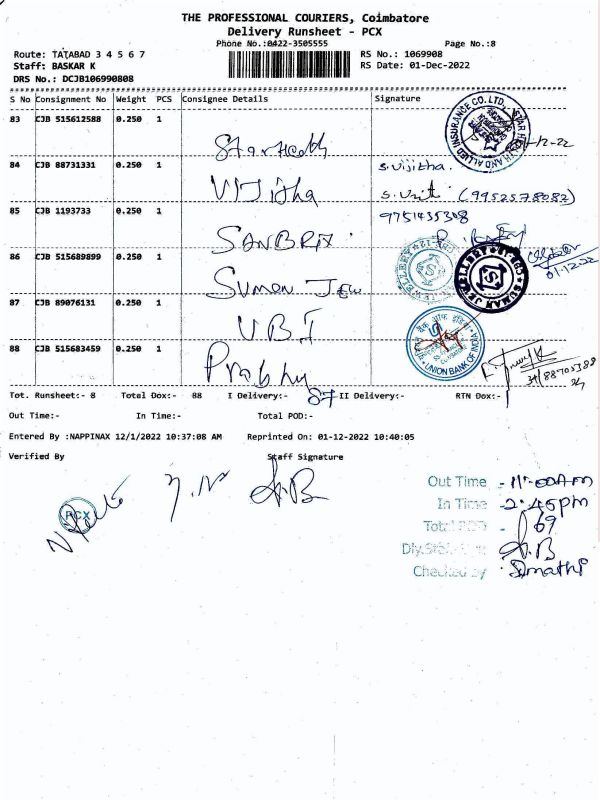 THE PROFESSIONAL COURIERS, Coimbatore
Delivery Runsheet - PCX
Phone No.:0422-3505555 Page No.:8
Route: TATABAD 3 4 5 6 7 RS No.: 1069908
Staff: BASKAR K RS Date: 01-Dec-2022
DRS No.: DCJB106990808
S No Consignment No Weight PCS Consignee Details Signature
83 CJB 515612588 0.250 1
Star Health
STAR HEALTH AND ALLIED INSURANCE CO.LTD.
84 CJB 88731331 0.250 1 S.Vijitha.
Vijitha (9952578082)
85 CJB 1193733 0.250 1 9751435308
SANBRIX
86 CJB 515689899 0.250 1
Sumon Jew
SUMAN JEWELLERY
01.12.22
87 CJB 89076131 0.250 1
UBI
UNION BANK OF INDIA
88 CJB 515683459 0.250 1
Prabhu
Tot. Runsheet:- 8 Total Dox:- 88 I Delivery:- 87 II Delivery:- RTN Dox:-
Out Time:- In Time:- Total POD:-
Entered By :NAPPINAX 12/1/2022 10:37:08 AM Reprinted On: 01-12-2022 10:40:05
Verified By Staff Signature
PCX
Out Time - 11:00AM
In Time - 2:45pm
Total POD - 69
Checked by